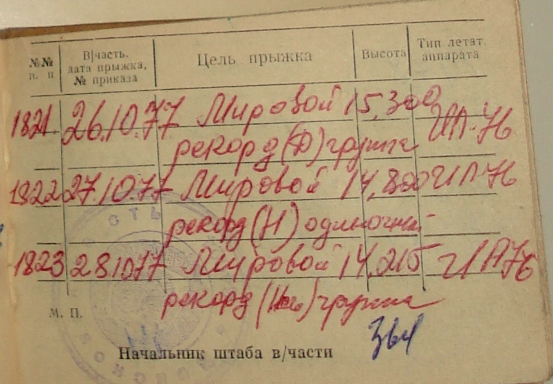 №№ п. п В/часть. дата прыжка, № приказа Цель прыжка Высота Тип летат. аппарата
1821. 26.10.77 Мировой 15,300 ИЛ-76
рекорд (Д) группа
1822 27.10.77 Мировой 14,800 ИЛ-76
рекорд (Н) одиночный
1823 28.10.77 Мировой 14,215 ИЛ76
рекорд группа
М. П.
Начальник штаба в/части